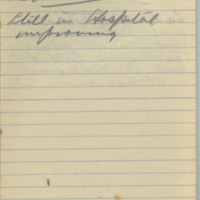 Still in Hospital
improving